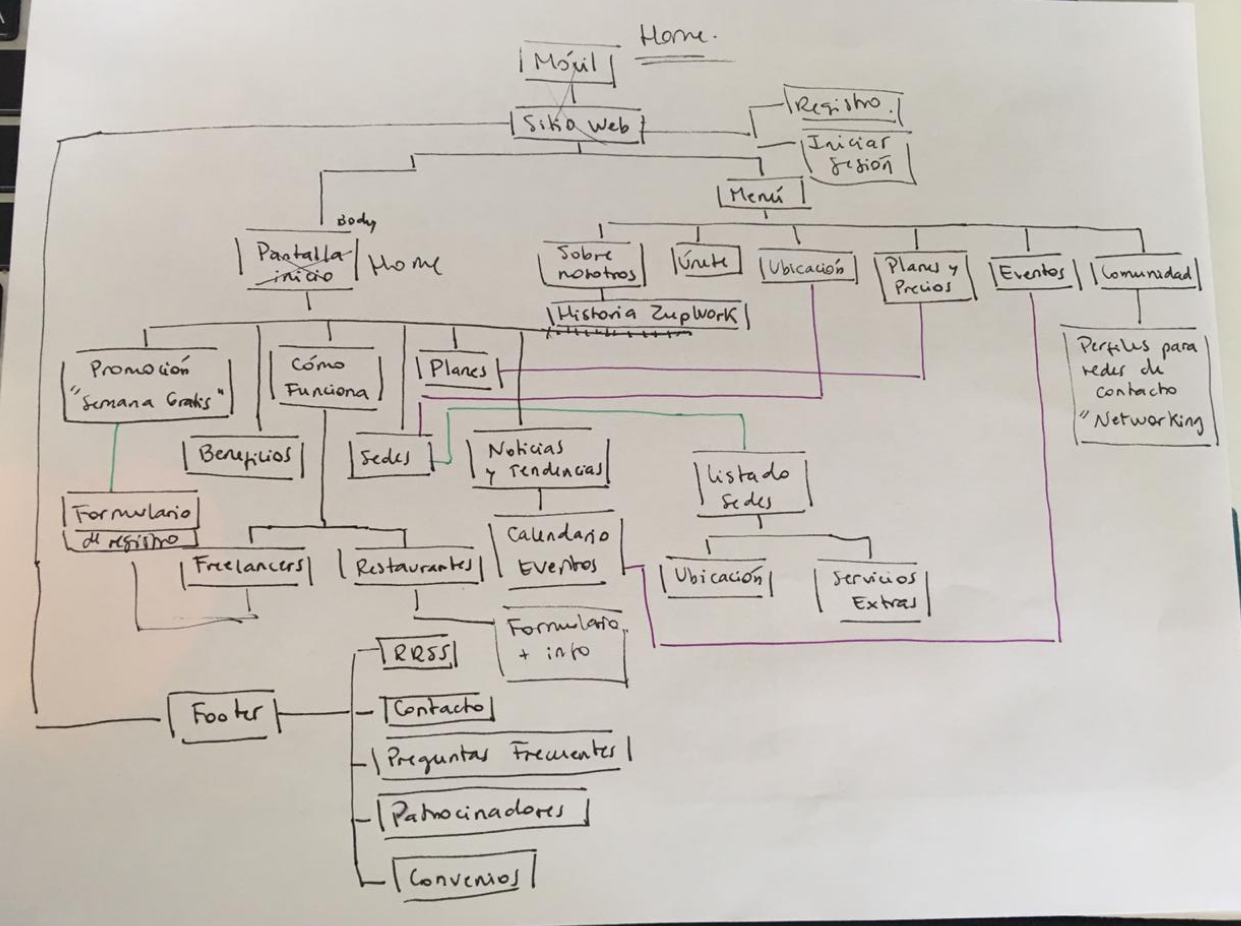 Home.
Móvil
Sitio Web
Registro.
Iniciar
Sesión
Menú
Body
Pantalla
inicio
Home
Sobre
nosotros
Únete
Ubicación
Planes y
Precios
Eventos
Comunidad
Historia ZupWork
Perfiles para
redes de
contacto
"Networking
Promoción
"Semana Gratis"
Cómo
Funciona
Planes
Beneficios
Sedes
Noticias
y Tendencias
Listado
Sedes
Formulario
de registro
Freelancers
Restaurantes
Calendario
Eventos
Ubicación
Servicios
Extras
Formulario
+ info
RRSS
Footer
Contacto
Preguntas Frecuentes
Patrocinadores
Convenios